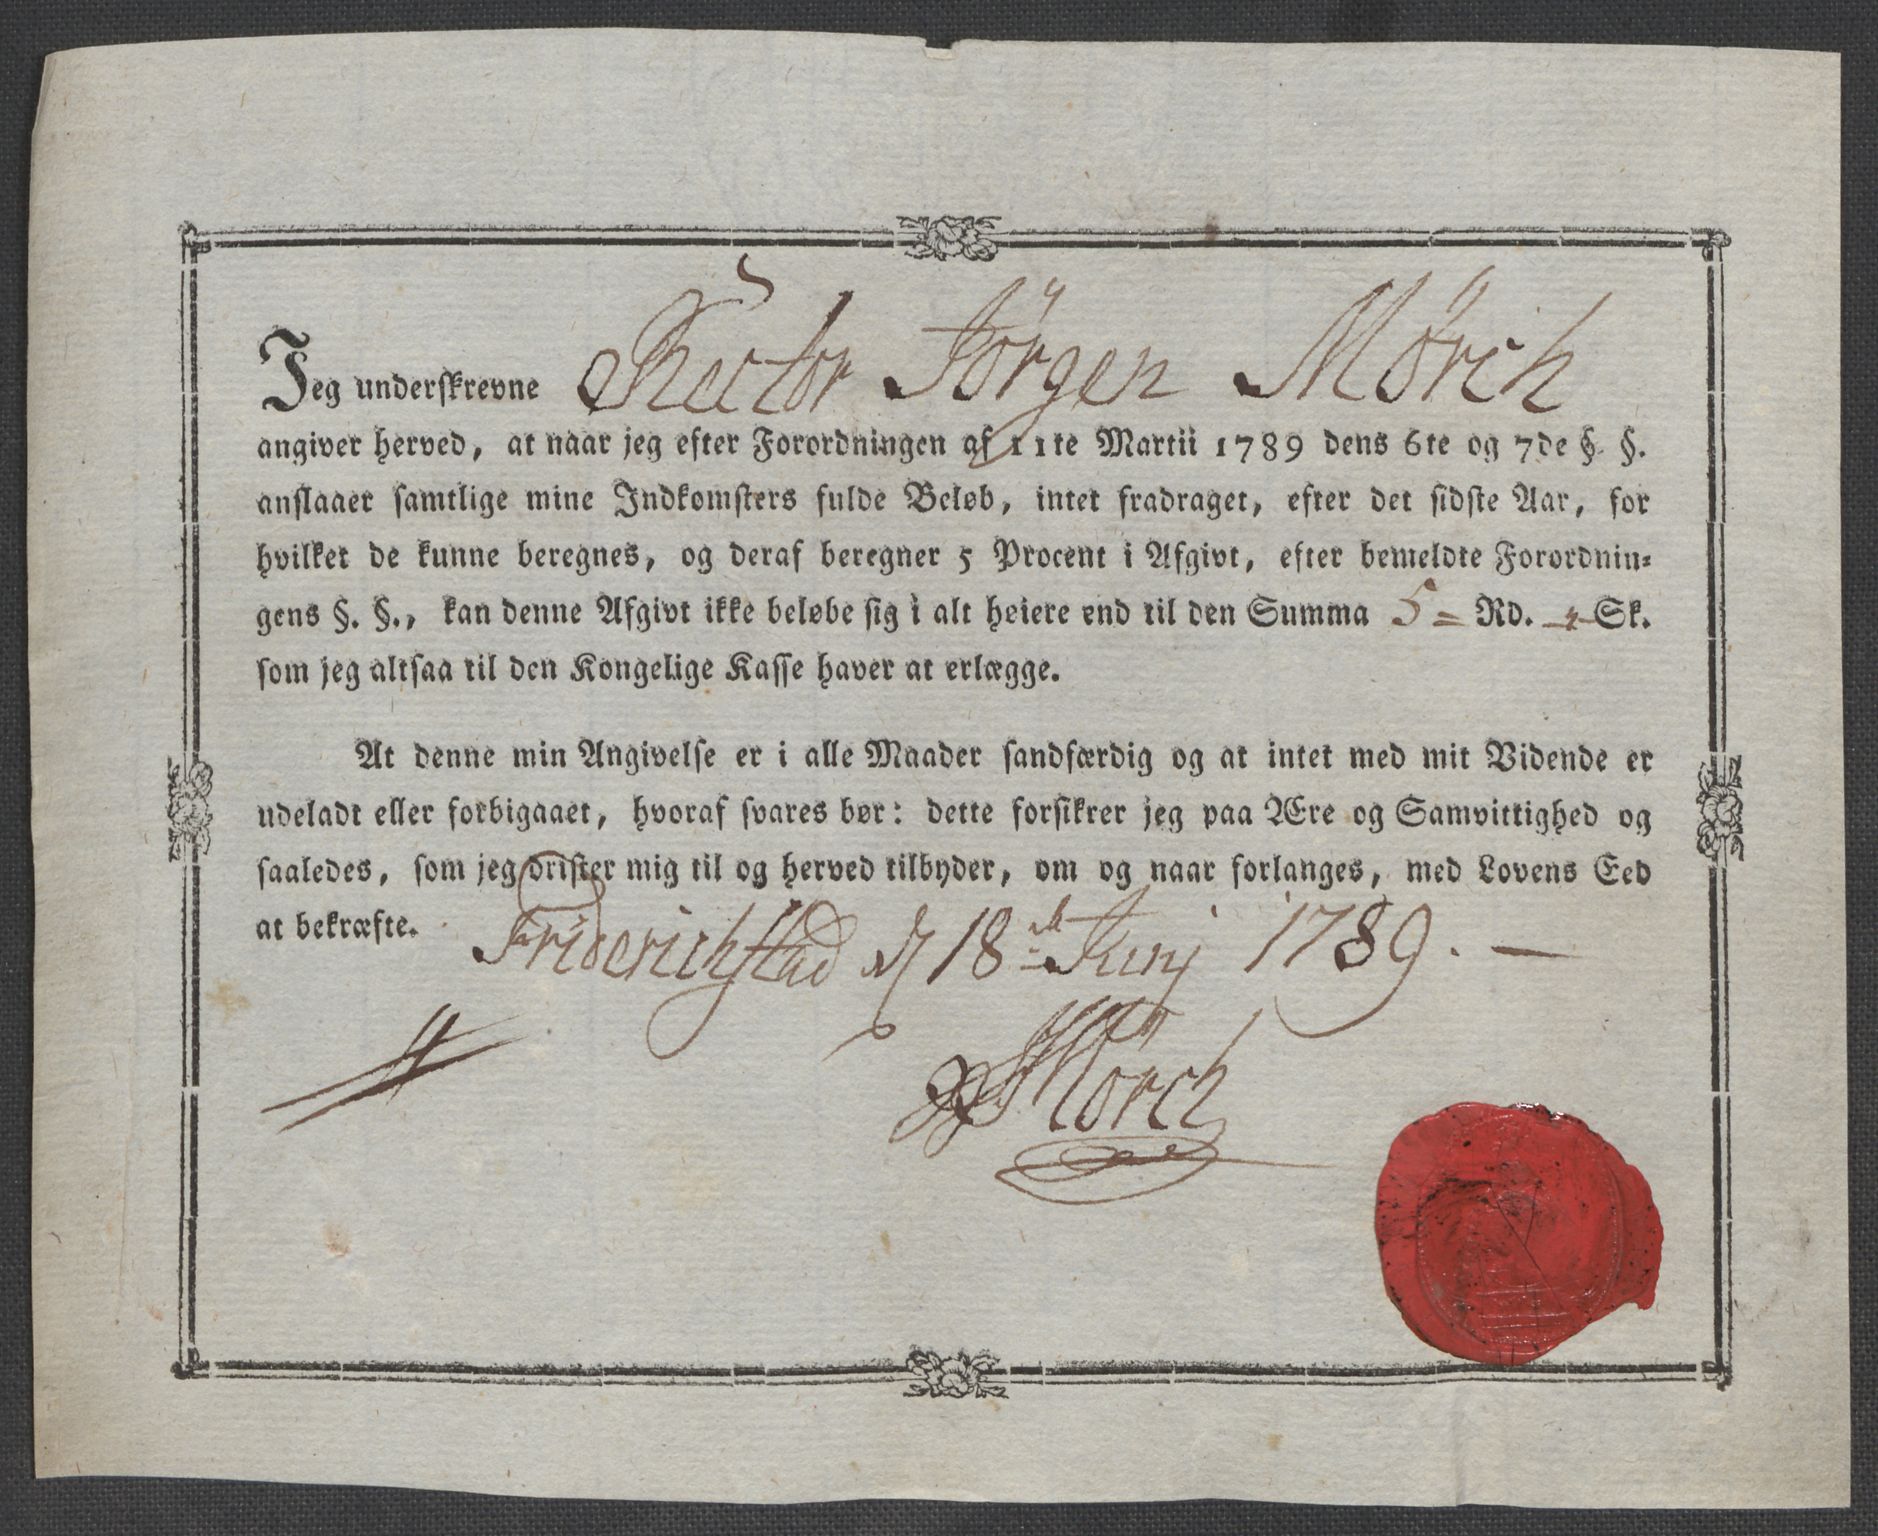 Jeg underskrevne Rector Jörgen Mörch
angiver herved, at naar jeg efter Forordningen af 11te Martii 1789 dens 6te og 7de §. §.
anslaaer samtlige mine Indkomsters fulde Beløb, intet fradraget, efter det sidste Aar, for
hvilket de kunne beregnes, og deraf beregner 5 Procent i Afgivt, efter bemeldte Forordnin=
gens §. §., kan denne Afgivt ikke beløbe sig i alt høiere end til den Summa 5 = Rd. Sk.
som jeg altsaa til den Kongelige Kasse haver at erlægge.
At denne min Angivelse er i alle Maader sandfærdig og at intet med mit Vidende er
udeladt eller forbigaaet, hvoraf svares bør: dette forsikrer jeg paa Ære og Samvittighed og
saaledes, som jeg drister mig til og herved tilbyder, om og naar forlanges, med Lovens Eed
at bekræfte. Friderichstad d 18 Junj 1789. —
Mörch